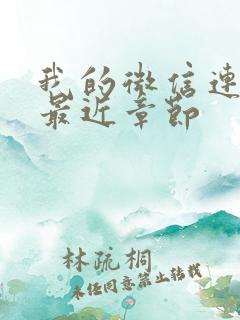 我的微信连
最近章节
林疏桐
未经同意禁止转载